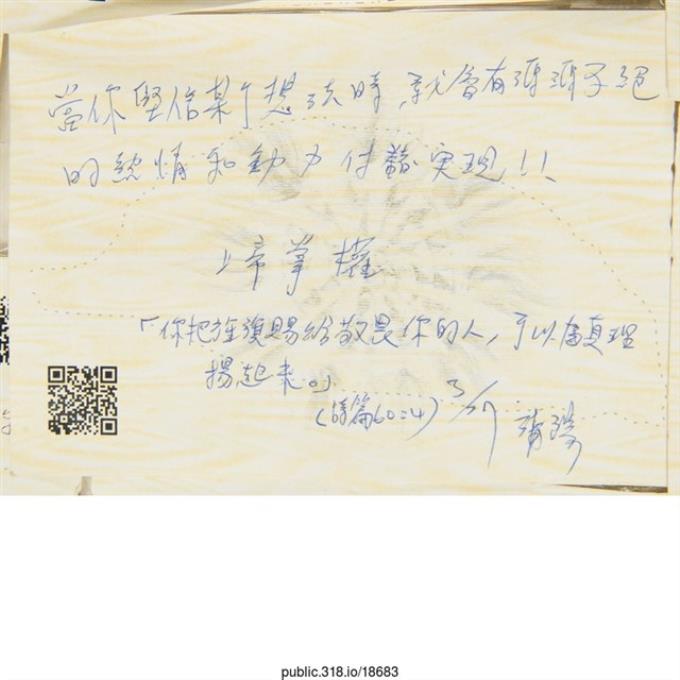 當你堅信某个想法時,就會有源源不絕
的熱情和動力付諸实現!!
上帝掌權
「你把旌旗賜給敬畏你的人,可以為真理
揚起來。」
(詩篇60:4) 3/27
public.318.io/18683